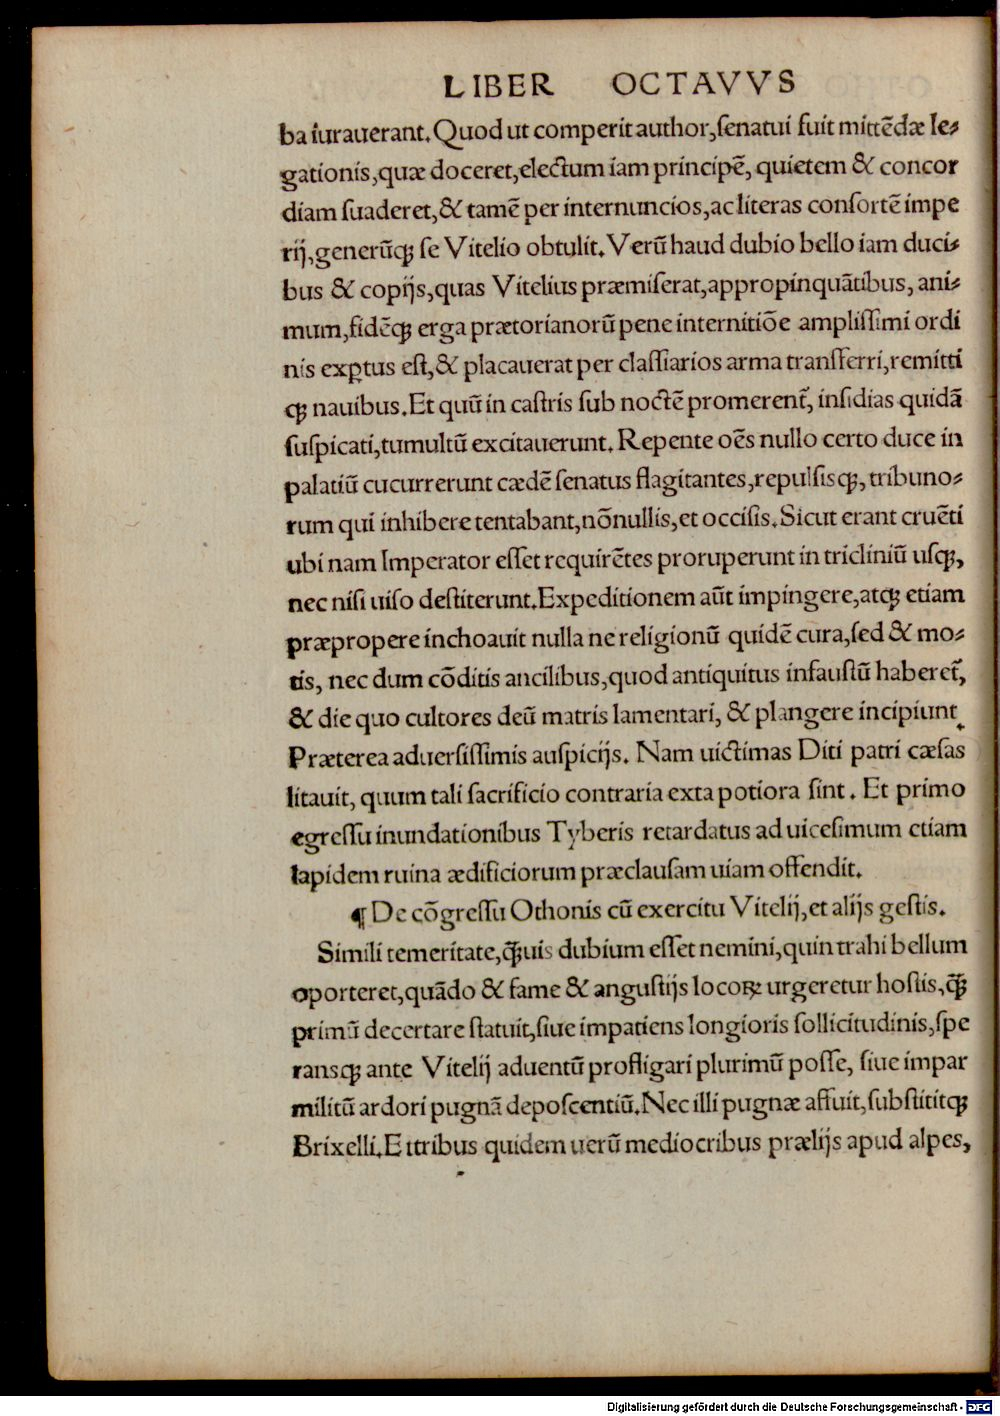 LIBER OCTAVVS
ba iurauerant. Quod ut comperit author, senatui fuit mittēdæ le⸗
gationis, quæ doceret, electum iam principē, quietem & concor
diam suaderet, & tamē per internuncios, ac literas consortē impe
rij, generūq̢ se Vitelio obtulit. Verū haud dubio bello iam duci⸗
bus & copijs, quas Vitelius præmiserat, appropinquātibus, ani⸗
mum, fidēq̢ erga prætorianorū pene internitiōe amplissimi ordi
nis exꝑtus est, & placauerat per classiarios arma transferri, remitti
q̢ nauibus. Et quū in castris sub noctē promerent̃, insidias quidā
suspicati, tumultū excitauerunt. Repente oēs nullo certo duce in
palatiū cucurrerunt cædē senatus flagitantes, repulsisq̢, tribuno⸗
rum qui inhibere tentabant, nōnullis, et occisis. Sicut erant cruēti
ubi nam Imperator esset requirētes proruperunt in tricliniū usq̢,
nec nisi uiso destiterunt. Expeditionem aūt impingere, atq̢ etiam
præpropere inchoauit nulla ne religionū quidē cura, sed & mo⸗
tis, nec dum cōditis ancilibus, quod antiquitus infaustū haberet̃,
& die quo cultores deū matris lamentari, & plangere incipiunt.
Præterea aduersissimis auspicijs. Nam uictimas Diti patri cæsas
litauit, quum tali sacrificio contraria exta potiora sint. Et primo
egressu inundationibus Tyberis retardatus ad uicesimum etiam
lapidem ruina ædificiorum præclausam uiam offendit.
¶ De cōgressu Othonis cū exercitu Vitelij, et alijs gestis.
Simili temeritate, q̢̄uis dubium esset nemini, quin trahi bellum
oporteret, quādo & fame & angustijs locoꝝ urgeretur hostis, q̢̄
primū decertare statuit, siue impatiens longioris sollicitudinis, spe
ransq̢ ante Vitelij aduentū profligari plurimū posse, siue impar
militū ardori pugnā deposcentiū. Nec illi pugnæ affuit, substititq̢
Brixelli. E ttribus quidem uerū mediocribus prælijs apud alpes,
Digitalisierung gefördert durch die Deutsche Forschungsgemeinschaft - DFG